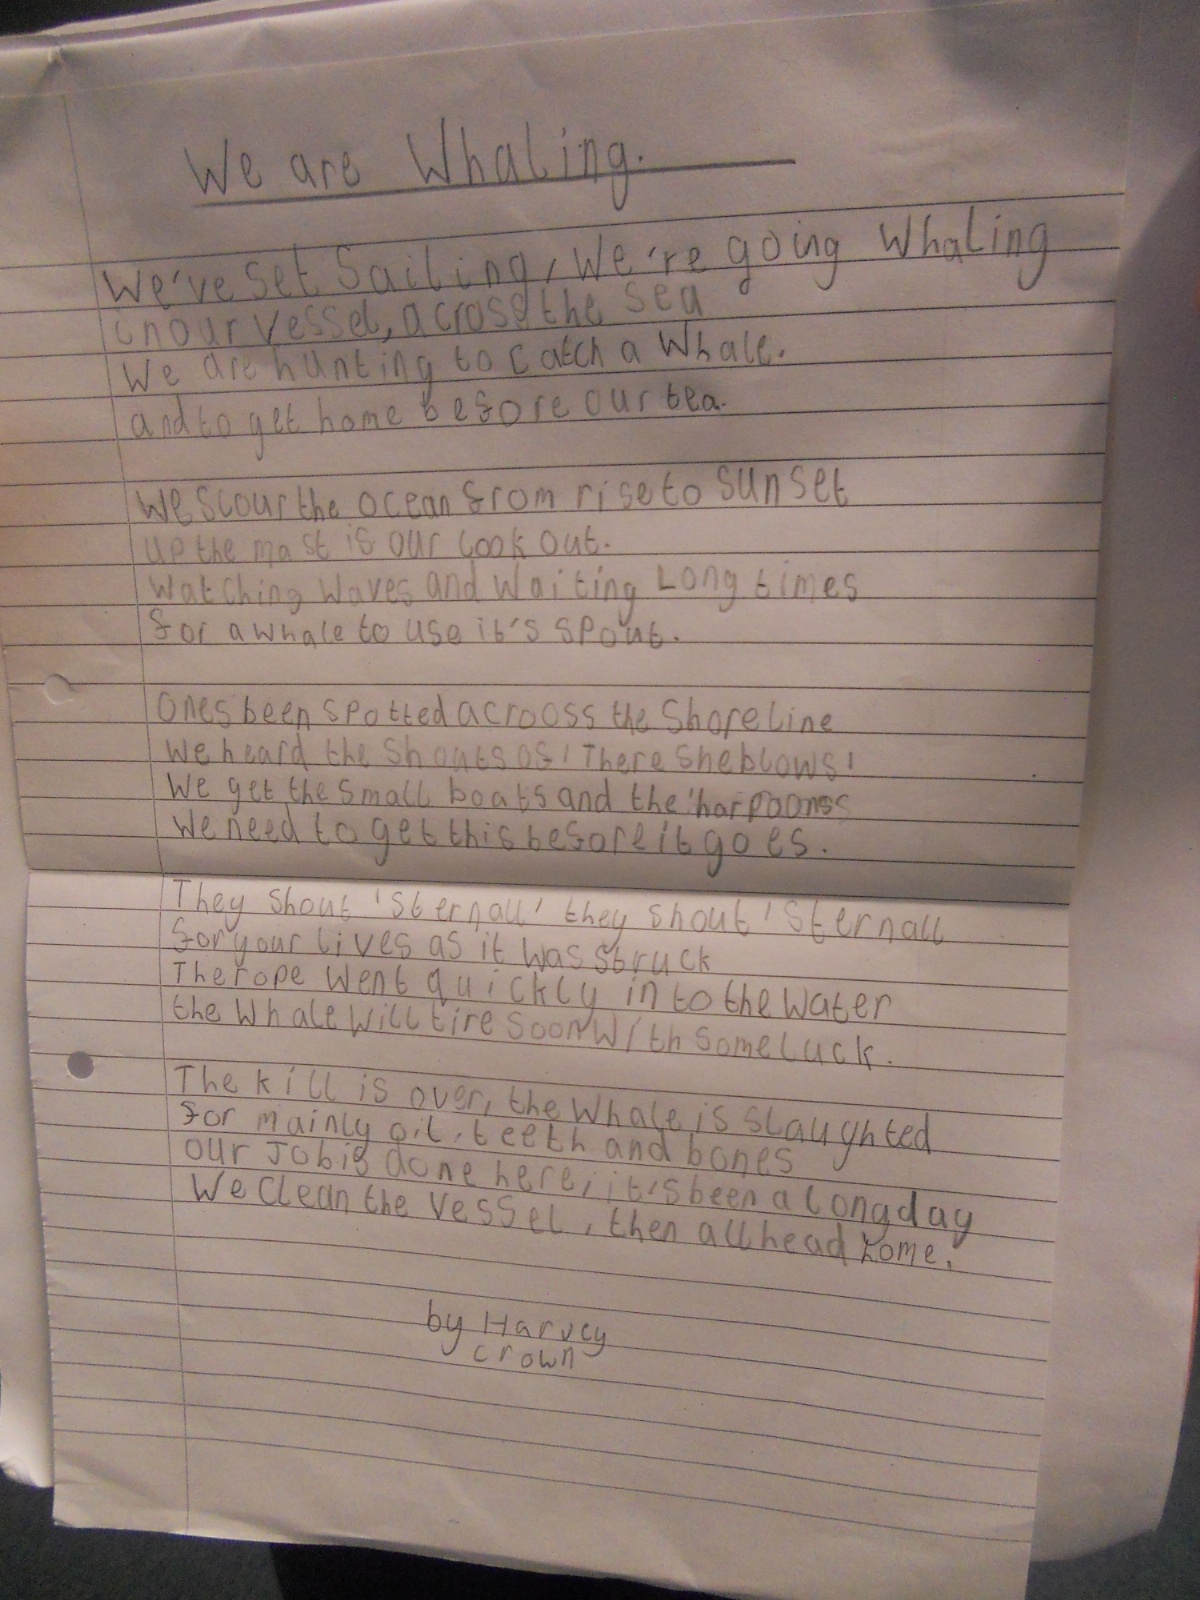 We are Whaling.
We've set Sailing, We're going Whaling
in our vessel, across the sea
We are hunting to catch a Whale.
and to get home before our tea.
We scour the ocean from rise to sunset
up the mast is our look out.
Watching Waves and Waiting Long times
for a whale to use it's spout.
Ones been spotted acrooss the Shoreline
We heard the shouts of 'There she blows'
We get the small boats and the 'harpoonss
We need to get this before it goes.
They shout 'sternall' they shout 'sternall
for your lives as it was struck
The rope went quickly in to the water
the Whale Will tire soon With some luck.
The kill is over, the Whale is slaughted
for mainly oil, teeth and bones
our Job is done here, it's been a long day
We Clean the Vessel, then all head home.
by Harvey
Crown